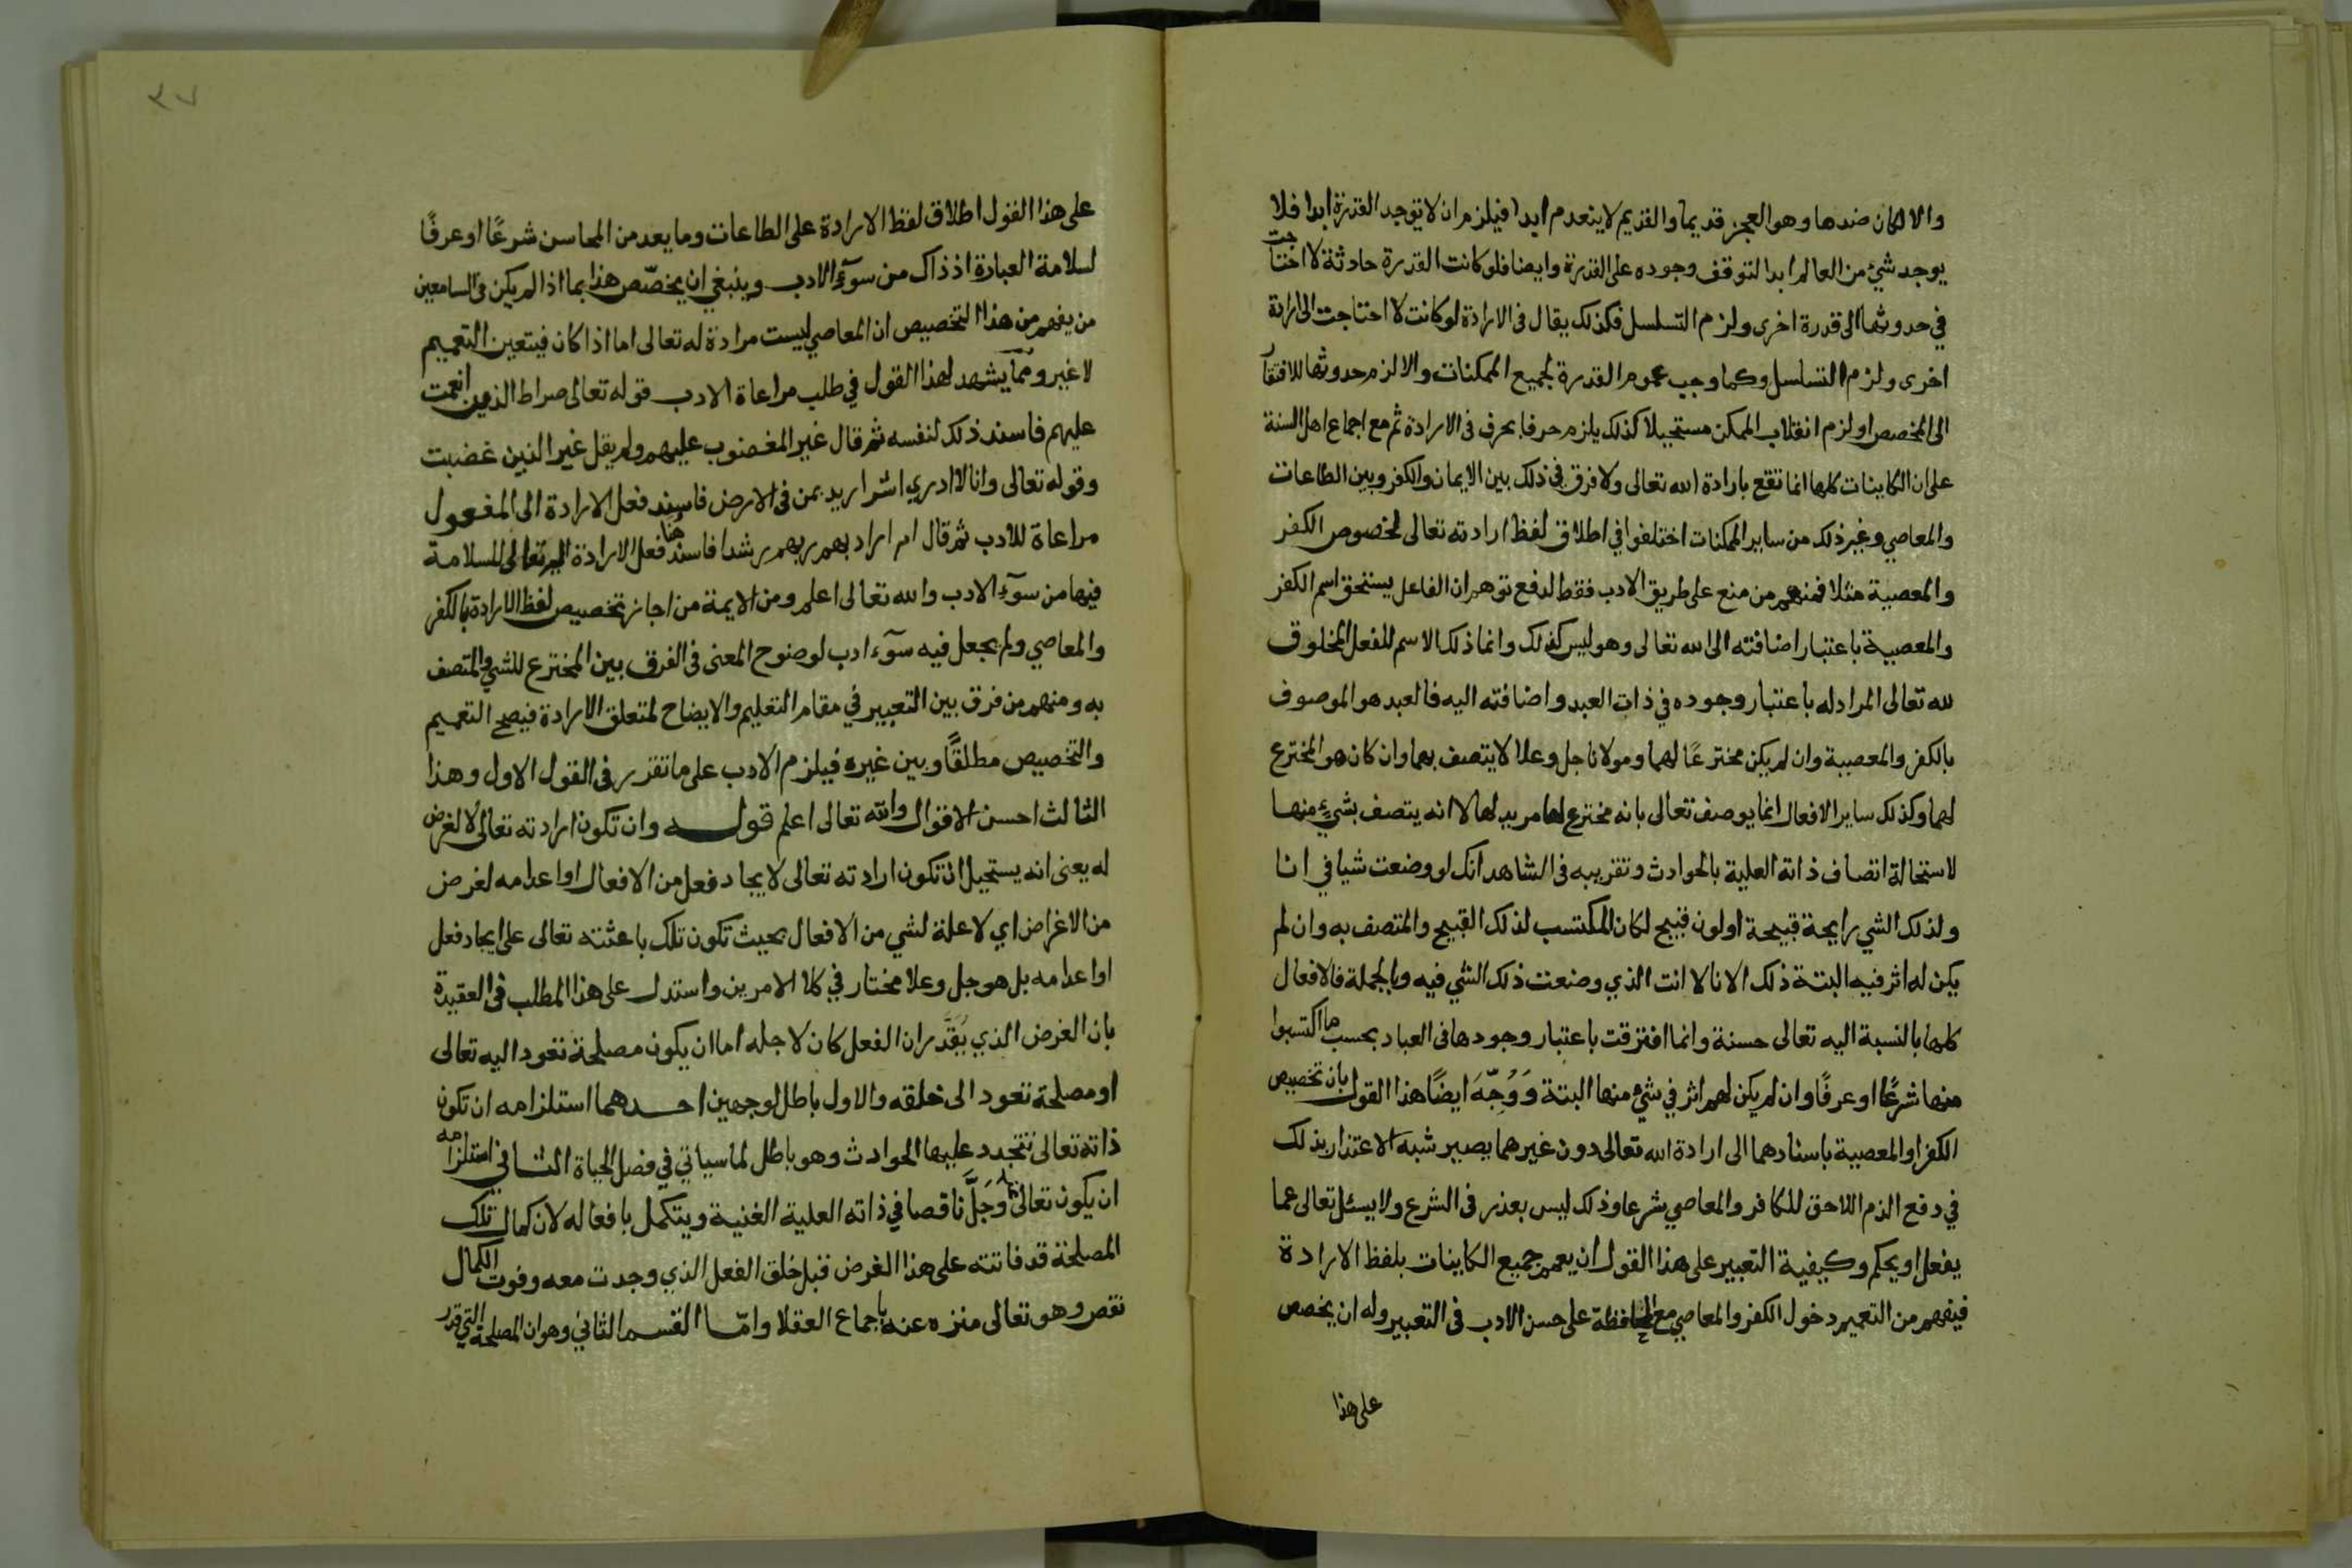 والا لكان ضدها وهو العجز قديما والقديم لا ينعدم ابدا فيلزم ان لا توجد القدرة ابدا فلا
يوجد شئ من العالم ابدا لتوقف وجوده على القدرة وايضا فلو كانت القدرة حادثة لاحتاجت
في حدوثها الى قدرة اخرى ولزم التسلسل فكذلك يقال فى الارادة لو كانت لاحتاجت الى ارادة
اخرى ولزم التسلسل وكما وجب عموم القدرة لجميع الممكنات والا لزم حدوثها للافتقار
الى المخصص او لزم انقلاب الممكن مستحيلا كذلك يلزم حرفا بحرف فى الارادة ثم مع اجماع اهل السنة
على ان الكاينات كلها انما تقع بارادة الله تعالى ولا فرق في ذلك بين الايمان والكفر وبين الطاعات
والمعاصي وغير ذلك من ساير الممكنات اختلفوا في اطلاق لفظ ارادته تعالى لخصوص الكفر
والمعصية مثلا فمنهم من منع على طريق الادب فقط لدفع توهم ان الفاعل يستحق اسم الكفر
والمعصية باعتبار اضافته الى الله تعالى وهو ليس كذلك وانما ذلك الاسم للفعل المخلوق
لله تعالى المراد له باعتبار وجوده في ذات العبد واضافته اليه فالعبد هو الموصوف
بالكفر والمعصية وان لم يكن مخترعًا لهما ومولانا جل وعلا لا يتصف بهما وان كان هو المخترع
لهما وكذلك ساير الافعال انما يوصف تعالى بانه مخترع لها مريد لها لا انه يتصف بشيءٍ منها
لاستحالة اتصاف ذاته العلية بالحوادث وتقريبه فى الشاهد انك لو وضعت شيا في انا
ولذلك الشي رايحة قبيحة او لون قبيح لكان المكتسب لذلك القبيح والمتصف به وان لم
يكن له اثر فيه البتة ذلك الانا لا انت الذي وضعت ذلك الشي فيه وبالجملة فالافعال
كلها بالنسبة اليه تعالى حسنة وانما افترقت باعتبار وجودها فى العباد بحسب ما اكتسبوا
منها شرعًا او عرفًا وان لم يكن لهم اثر في شئ منها البتة وَوُجِّهَ ايضًا هذا القول بان تخصيص
الكفر او المعصية باسنادهما الى ارادة الله تعالى دون غيرهما يصير شبه الاعتذار بذلك
في دفع الذم اللاحق للكافر والمعاصي شرعا وذلك ليس بعذر فى الشرع ولا يسئل تعالى عما
يفعل او يحكم وكيفية التعبير على هذا القول ان يعمم جميع الكاينات بلفظ الارادة
فيفهم من التعميم دخول الكفر والمعاصي مع المحافظة على حسن الادب فى التعبير وله ان يخصص
على هذا
٣٧
على هذا القول اطلاق لفظ الارادة على الطاعات وما يعد من المحاسن شرعًا او عرفًا
لسلامة العبارة اذ ذاك من سوٓء الادب وينبغي ان يخصّص هذا بما اذا لم يكن فى السامعين
من يفهم من هذا التخصيص ان المعاصي ليست مرادة له تعالى اما اذا كان فيتعين التعميم
لا غير ومما يشهد لهذا القول في طلب مراعاة الادب قوله تعالى صراط الذين انعمت
عليهم فاسند ذلك لنفسه ثم قال غير المغضوب عليهم ولم يقل غير الذين غضبت
وقوله تعالى وانا لا ادري اشر اريد بمن فى الارض فاسند فعل الارادة الى المفعول
مراعاة للادب ثم قال ام اراد بهم ربهم رشدا فاسند هنا فعل الارادة اليه تعالى للسلامة
فيها من سوٓء الادب والله تعالى اعلم ومن الايمة من اجاز تخصيص لفظ الارادة بالكفر
والمعاصي ولم يجعل فيه سوٓء ادب لوضوح المعنى فى الفرق بين المخترع للشي والمتصف
به ومنهم من فرق بين التعبير في مقام التعليم والايضاح لمتعلق الارادة فيصح التعميم
والتخصيص مطلقًا وبين غيره فيلزم الادب على ما تقرر فى القول الاول وهذا
الثالث احسن الاقوال والله تعالى اعلم قوله وان تكون ارادته تعالى لا لغرض
له يعنى انه يستحيل ان تكون ارادته تعالى لايجاد فعل من الافعال او اعدامه لغرض
من الاغراض اي لا علة لشي من الافعال بحيث تكون تلك باعثته تعالى على ايجاد فعل
او اعدامه بل هو جل وعلا مختار في كلا الامرين واستدل على هذا المطلب فى العقيدة
بان الغرض الذي يُقَدَّر ان الفعل كان لاجله اما ان يكون مصلحة تعود اليه تعالى
او مصلحة تعود الى خلقه والاول باطل لوجهين احدهما استلزامه ان تكون
ذاته تعالى تتجدد عليها الحوادث وهو باطل لما سياتي في فصل الحياة الثاني استلزامه
ان يكون تعالى وَجَلَّ ناقصا في ذاته العلية الغنية ويتكمل بافعاله لان كمال تلك
المصلحة قد فاتته على هذا الغرض قبل خلق الفعل الذي وجدت معه وفوت الكمال
نقص وهو تعالى منزه عنه باجماع العقلا وامّا القسم الثاني وهو ان المصلحة التي قدر